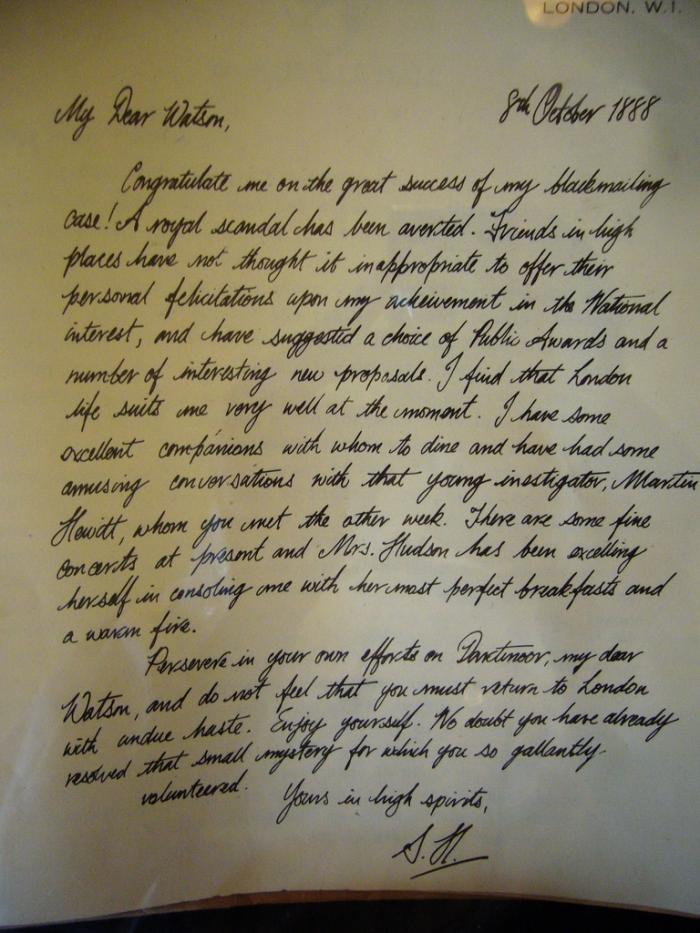 LONDON, W.1.
My Dear Watson,
8th October 1888
Congratulate me on the great success of my blackmailing
case! A royal scandal has been averted. Friends in high
places have not thought it inappropriate to offer their
personal felicitations upon my acheivement in the National
interest, and have suggested a choice of Public Awards and a
number of interesting new proposals. I find that London
life suits me very well at the moment. I have some
excellent companions with whom to dine and have had some
amusing conversations with that young inestigator, Martin
Hewitt, whom you met the other week. There are some fine
concerts at present and Mrs. Hudson has been excelling
herself in consoling me with her most perfect breakfasts and
a warm fire.
Persevere in your own efforts on Dartmoor, my dear
Watson, and do not feel that you must return to London
with undue haste. Enjoy yourself. No doubt you have already
resolved that small mystery for which you so gallantly
volunteered.
Yours in high spirits,
S.H.